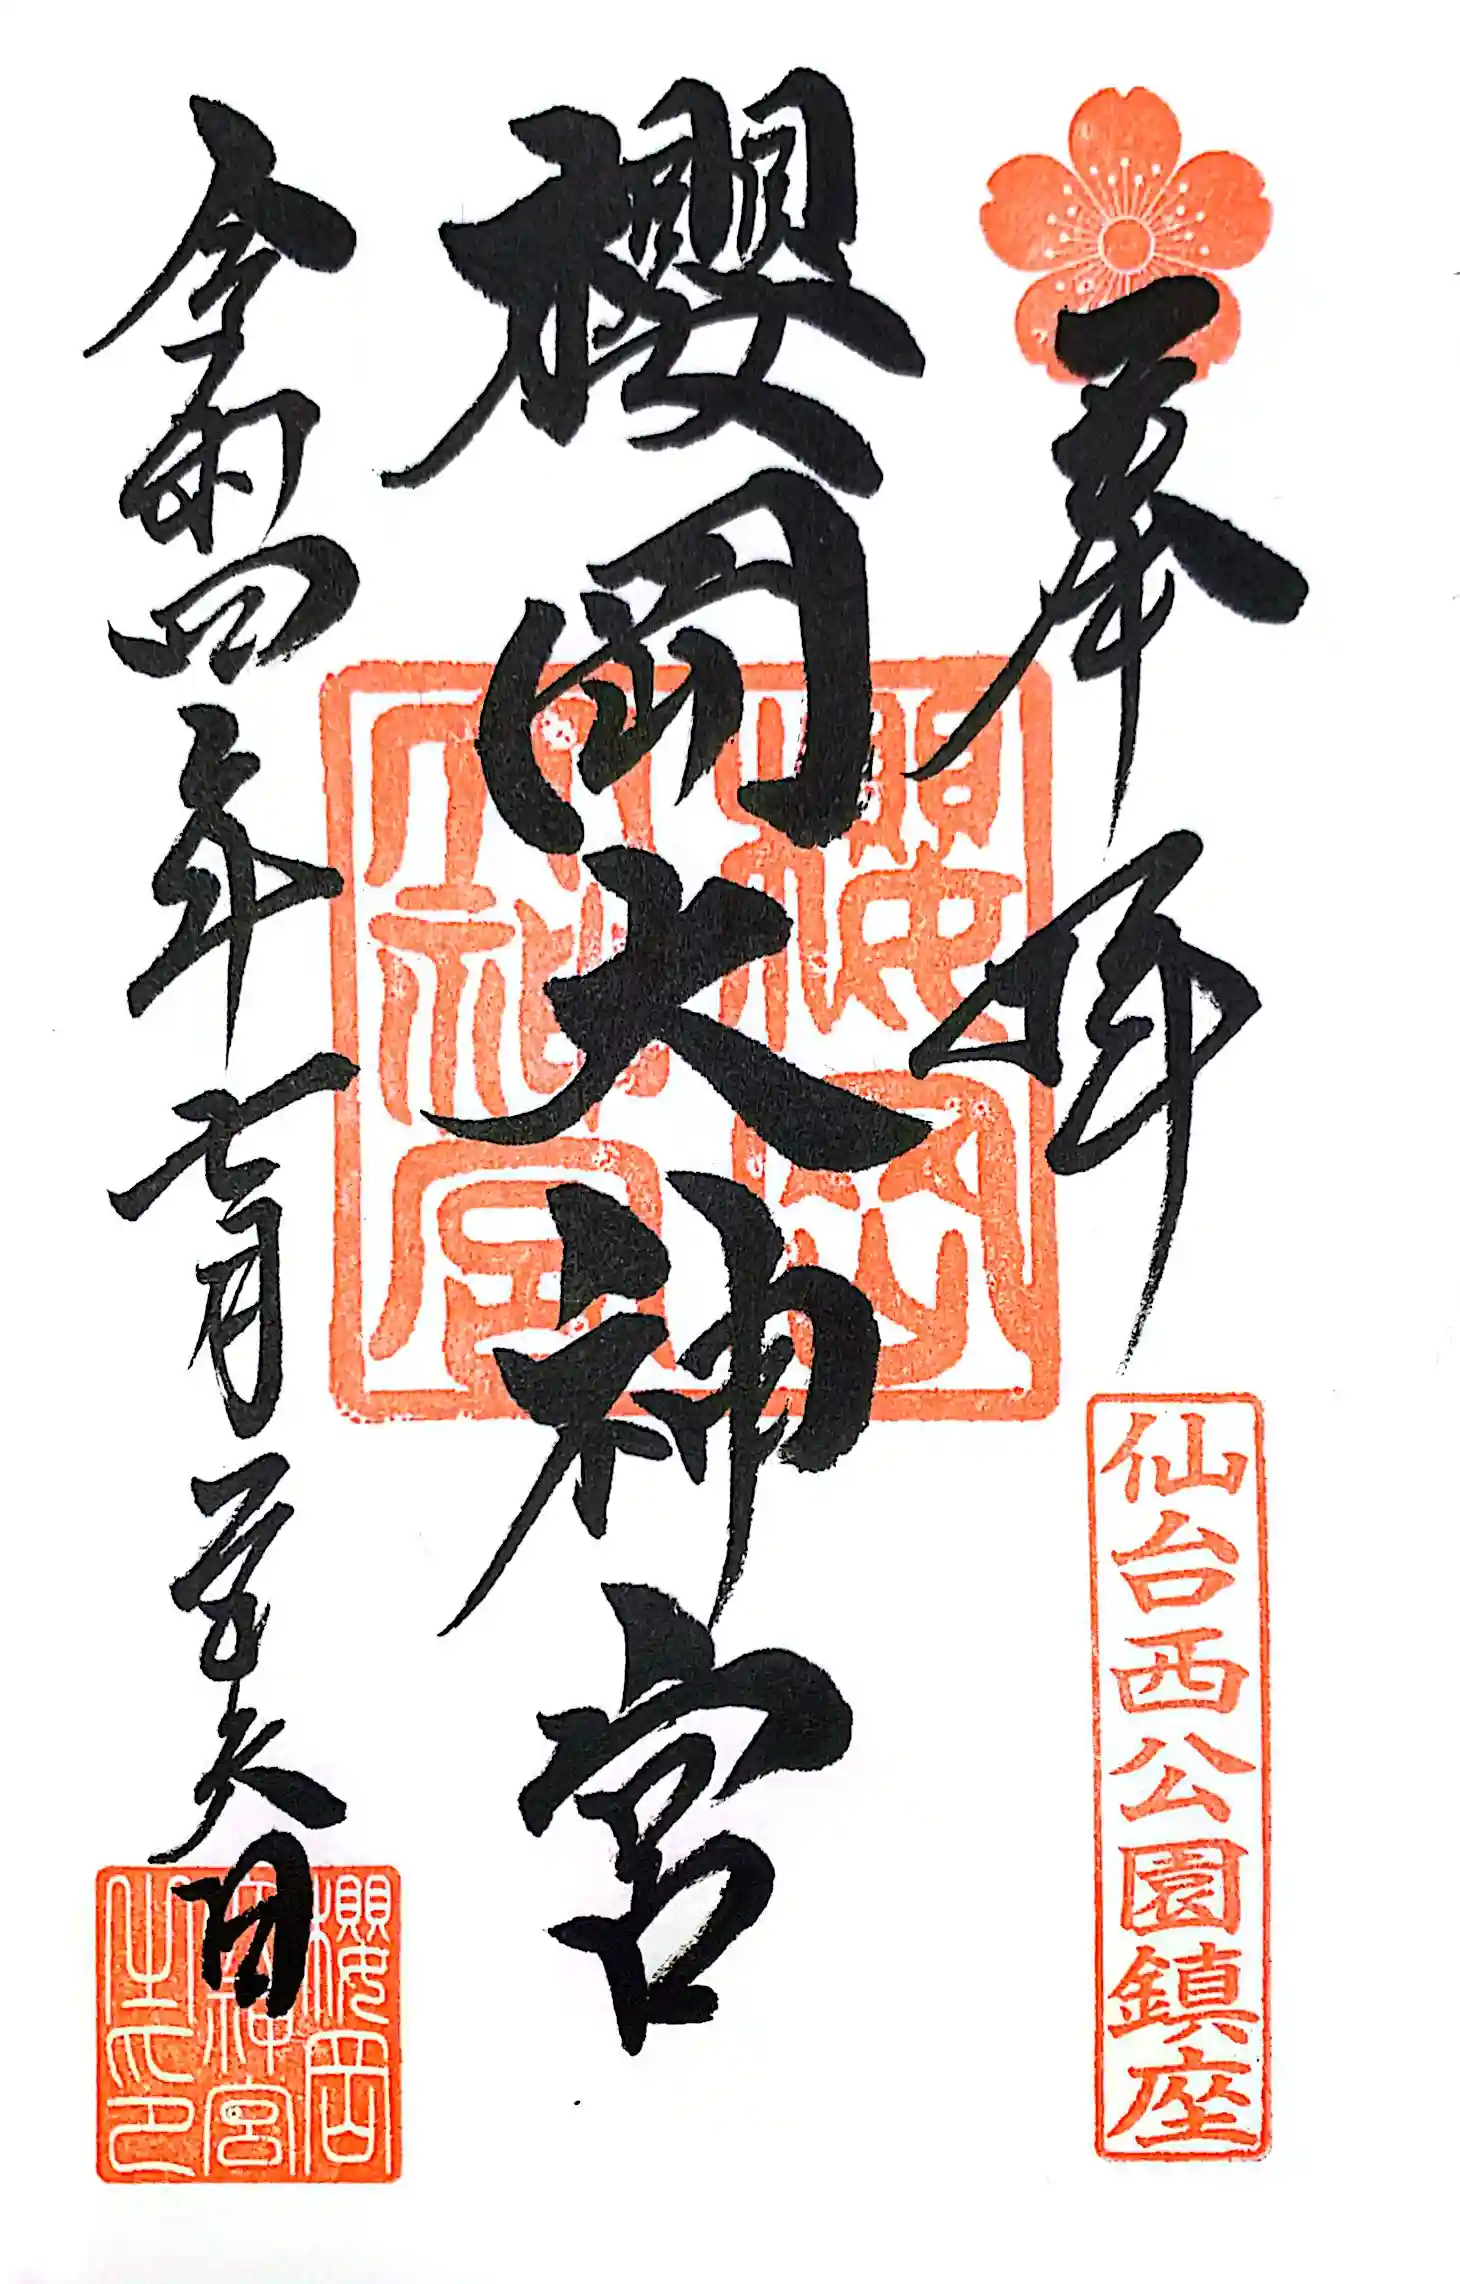 奉拝
仙台西公園鎮座
櫻岡大神宮
櫻岡
大神宮
令和四年七月 日
櫻岡
大神宮
之印